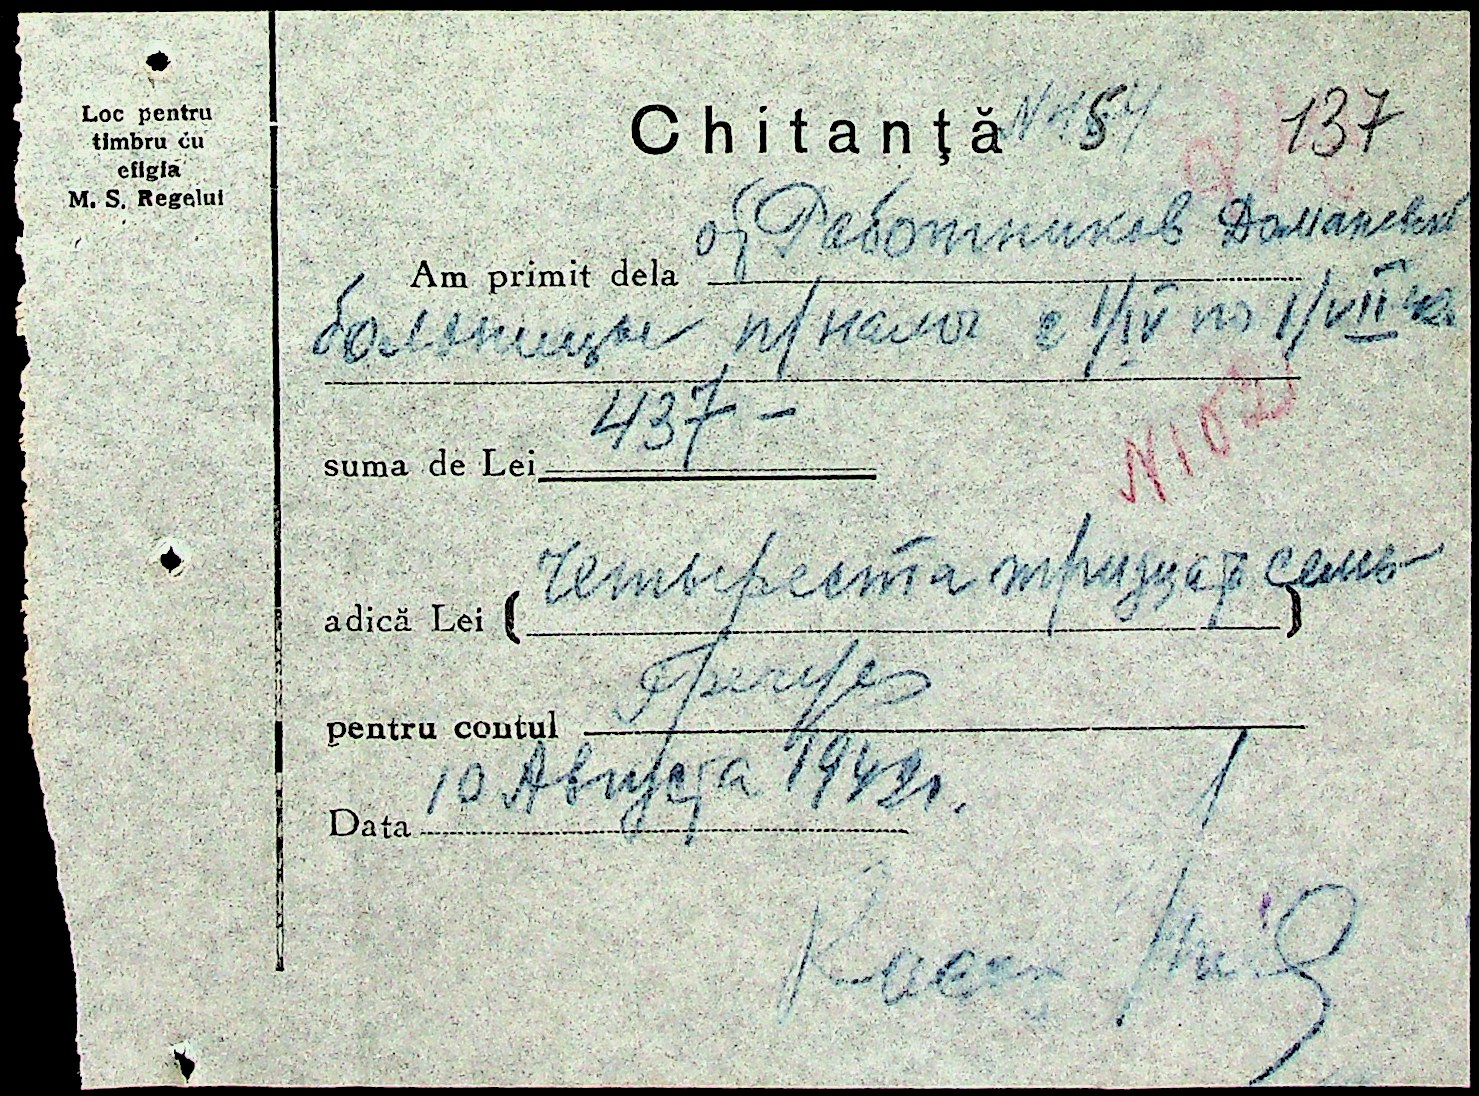 Loc pentru
timbru cu
efigia
M. S. Regelui
Chitanţă
137
Am primit dela от Работников Доманевской
больницы п/налог с 1/IV по 1/VII 42
suma de Lei 437 —
N 102
adică Lei ( Четыреста тридцат семь )
pentru contul
Data 10 Августа 1942 г.